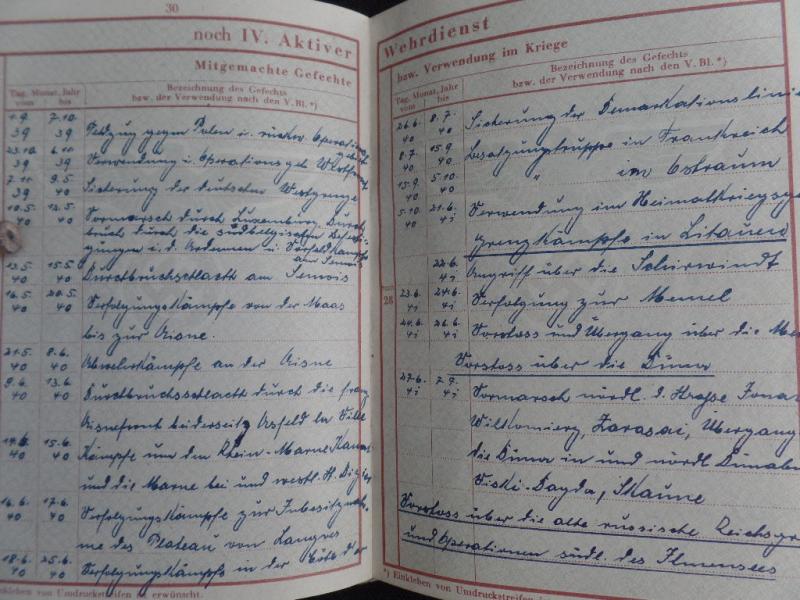 30
noch IV. Aktiver
Mitgemachte Gefechte
Tag, Monat, Jahr
vom bis
Bezeichnung des Gefechts
bzw. der Verwendung nach den V. Bl. *)
1.9. 39 7.10. 39 Feldzug gegen Polen u. rückw. Operations
gebiet
23.10. 39 6.11. 39 Verwendung i. Operationsgeb. Westfront
7.11. 39 9.5. 40 Sicherung der deutschen Westgrenze
10.5. 40 12.5. 40 Vormarsch durch Luxemburg, Durch-
bruch durch die südbelgischen Befesti-
gungen i. d. Ardennen u. Vorfeldkämpfe
am Semois
13.5. 40 15.5. 40 Durchbruchschlacht am Semois
16.5. 40 20.5. 40 Verfolgungskämpfe von der Maas
bis zur Aisne.
21.5. 40 8.6. 40 Abwehrkämpfe an der Aisne
9.6. 40 13.6. 40 Durchbruchsschlacht durch die franz
Aisnefront beiderseits Asfeld la Ville
14.6. 40 15.6. 40 Kämpfe um den Rhein-Marne Kanal
und die Marne bei und westl. St. Dizier
16.6. 40 17.6. 40 Verfolgungskämpfe zur Inbesitznah-
me des Plateau von Langres
18.6. 40 25.6. 40 Verfolgungskämpfe in der Côte d'or
Einkleben von Umdruckstreifen ist erwünscht.
Wehrdienst
bzw. Verwendung im Kriege
Tag, Monat, Jahr
vom bis
Bezeichnung des Gefechts
bzw. der Verwendung nach den V. Bl. *)
26.6. 40 8.7. 40 Sicherung der Demarkationslinie
8.7. 40 15.9. 40 Besatzungstruppe in Frankreich
15.9. 40 5.10. 40 " im Ostraum
5.10. 40 21.6. 41 Verwendung im Heimatkriegsge
Grenzkämpfe in Litauen
22.6. 41 Angriff über die Schirwindt
23.6. 41 24.6. 41 Verfolgung zur Memel
24.6. 41 26.6. 41 Vorstoss und Übergang über die Me
Vorstoss über die Düna
27.6. 41 7.7. 41 Vormarsch nördl. d. Straße Jona
Wilkomierz, Zarasai, Übergang
die Düna in und nördl Dünabu
Viski-Dagda, Skaune
Vorstoss über die alte russische Reichsgr
und Operationen südl. des Ilmensees
28
*) Einkleben von Umdruckstreifen